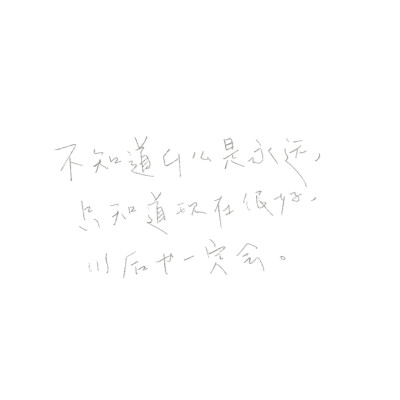 不知道什么是永远，
只知道现在很好，
以后也一定会。